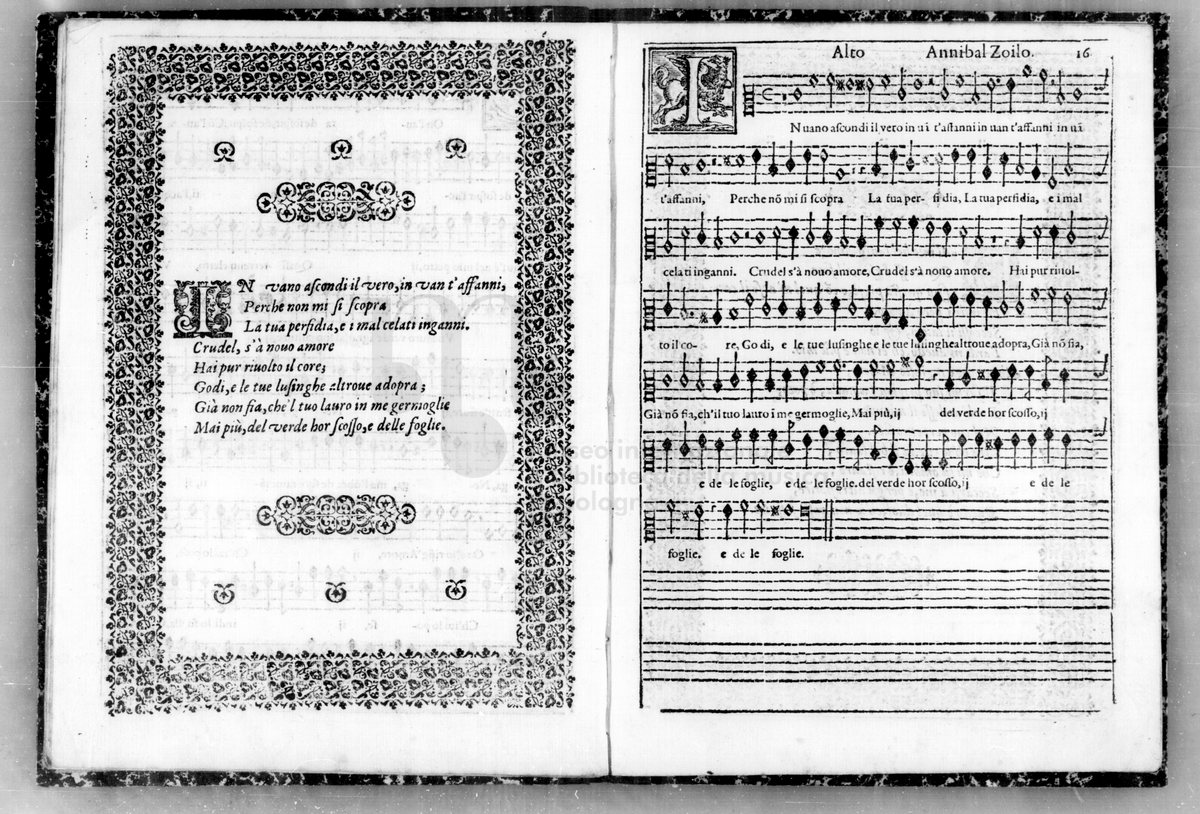 IN vano ascondi il vero, in van t'affanni,
Perche non mi si scopra
La tua perfidia, e i mal celati inganni.
Crudel, s'à nouo amore
Hai pur riuolto il core;
Godi, e le tue lusinghe altroue adopra;
Già non fia, che'l tuo lauro in me germoglie
Mai più, del verde hor scosso, e delle foglie.
Alto Annibal Zoilo. 16
IN uano ascondi il vero in uā t'affanni in uan t'affanni in uā
t'affanni, Perche nō mi si scopra La tua per- fidia, La tua perfidia, e i mal
celati inganni. Crudel s'à nouo amore, Crudel s'à nouo amore. Hai pur riuol-
to il co- re, Godi, e le tue lusinghe e le tue lusinghe altroue adopra, Già nō fia,
Già nō fia, ch'il tuo lauro ī me germoglie, Mai più, ij del verde hor scosso, ij
e de le foglie, e de le foglie. del verde hor scosso, ij e de le
foglie. e de le foglie.
seo in
biblioteca della musica
bologn